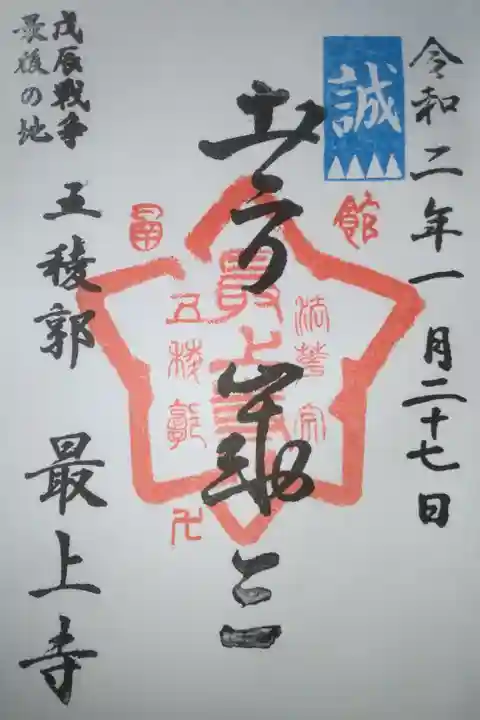 令和二年一月二十七日
誠
土方歳三
函館
法華宗
最上寺
五稜郭
戊辰戦争
最後の地
五稜郭 最上寺